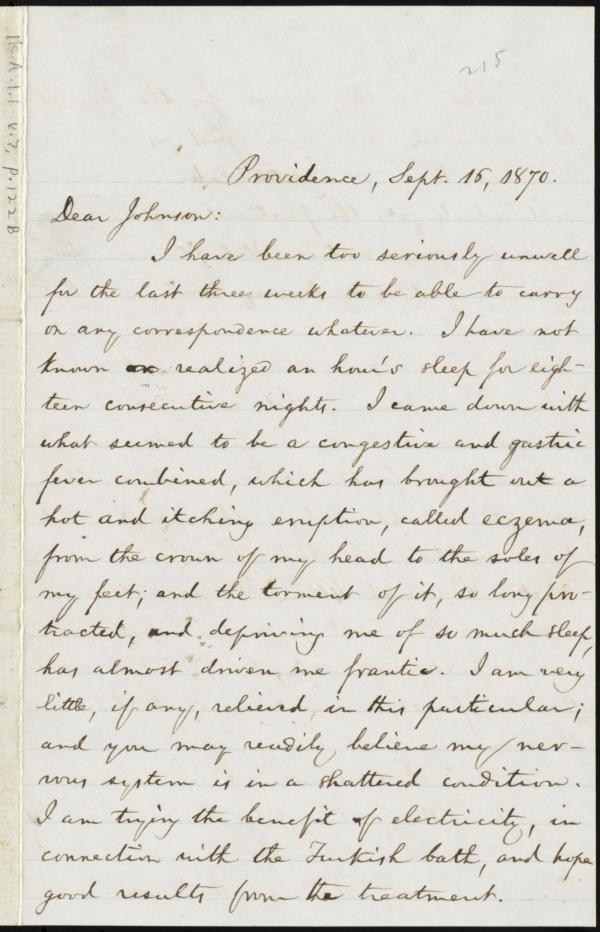 215
Ms. A. 1.1 v. 7, p. 122 B
Providence, Sept. 15, 1870.
Dear Johnson:
I have been too seriously unwell
for the last three weeks to be able to carry
on any correspondence whatever. I have not
known or realized an hour's sleep for eigh-
teen consecutive nights. I came down with
what seemed to be a congestive and gastric
fever combined, which has brought out a
hot and itching eruption, called eczema,
from the crown of my head to the soles of
my feet; and the torment of it, so long pro-
tracted, and depriving me of so much sleep,
has almost driven me frantic. I am very
little, if any, relieved in this particular;
and you may readily believe my ner-
vous system is in a shattered condition.
I am trying the benefit of electricity, in
connection with the Turkish bath, and hope
good results from the treatment.